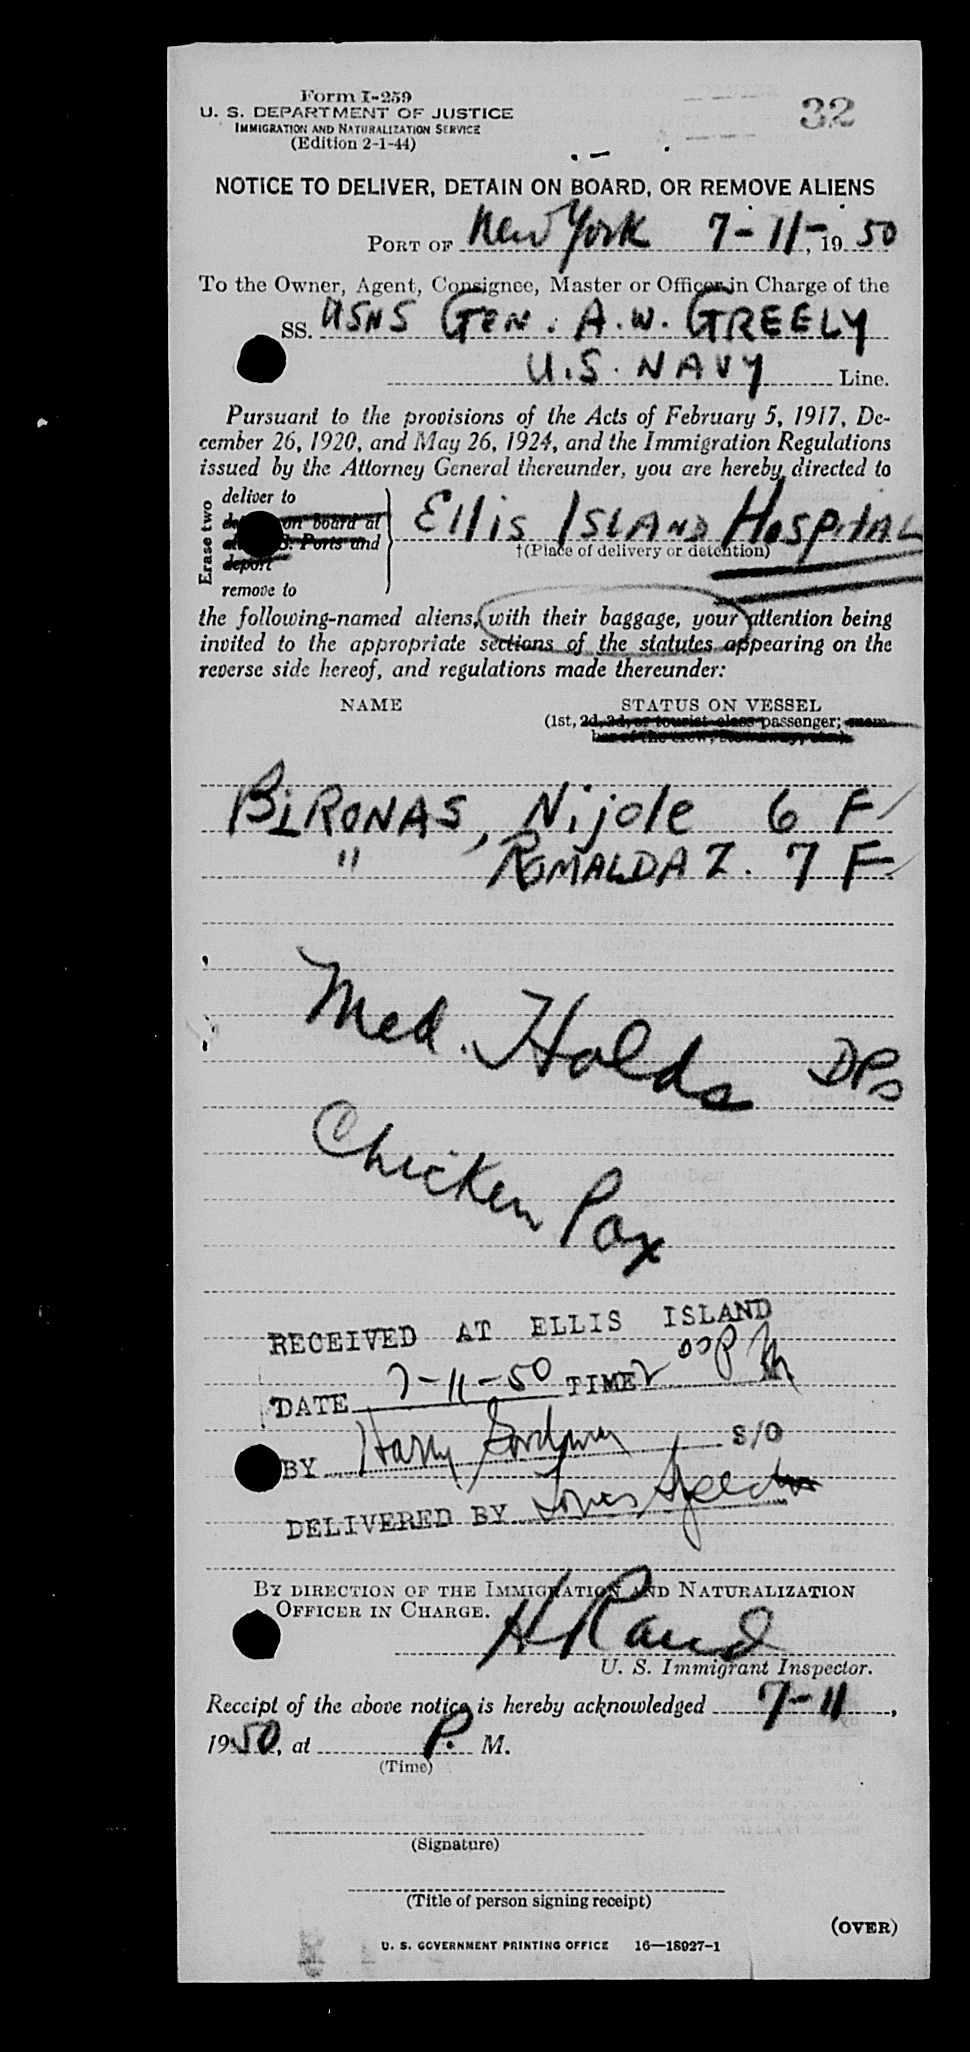 32
Form I-259
U. S. DEPARTMENT OF JUSTICE
IMMIGRATION AND NATURALIZATION SERVICE
(Edition 2-1-44)
NOTICE TO DELIVER, DETAIN ON BOARD, OR REMOVE ALIENS
PORT OF New York 7-11-, 1950
To the Owner, Agent, Consignee, Master or Officer in Charge of the
SS. USNS GEN. A.W. GREELY
U.S. NAVY Line.
Pursuant to the provisions of the Acts of February 5, 1917, De-
cember 26, 1920, and May 26, 1924, and the Immigration Regulations
issued by the Attorney General thereunder, you are hereby directed to
Erase two
deliver to
on board at
S. Ports and
deport
remove to
Ellis ISLAND HOSPITAL
†(Place of delivery or detention)
the following-named aliens, with their baggage, your attention being
invited to the appropriate sections of the statutes appearing on the
reverse side hereof, and regulations made thereunder:
NAME STATUS ON VESSEL
(1st, 2d, 3d, or tourist class passenger; mem-
ber of the crew, stowaway, etc.)
BIRONAS, Nijole 6 F
" ROMALDA Z. 7 F
Med. Holds DPs
Chicken Pox
RECEIVED AT ELLIS ISLAND
DATE 7-11-50 TIME 2 00 P M
BY Harry S/O
DELIVERED BY
BY DIRECTION OF THE IMMIGRATION AND NATURALIZATION
OFFICER IN CHARGE.
H Rand
U. S. Immigrant Inspector.
Receipt of the above notice is hereby acknowledged 7-11,
1950, at P. M.
(Time)
(Signature)
(Title of person signing receipt)
(OVER)
U. S. GOVERNMENT PRINTING OFFICE 16—18927-1